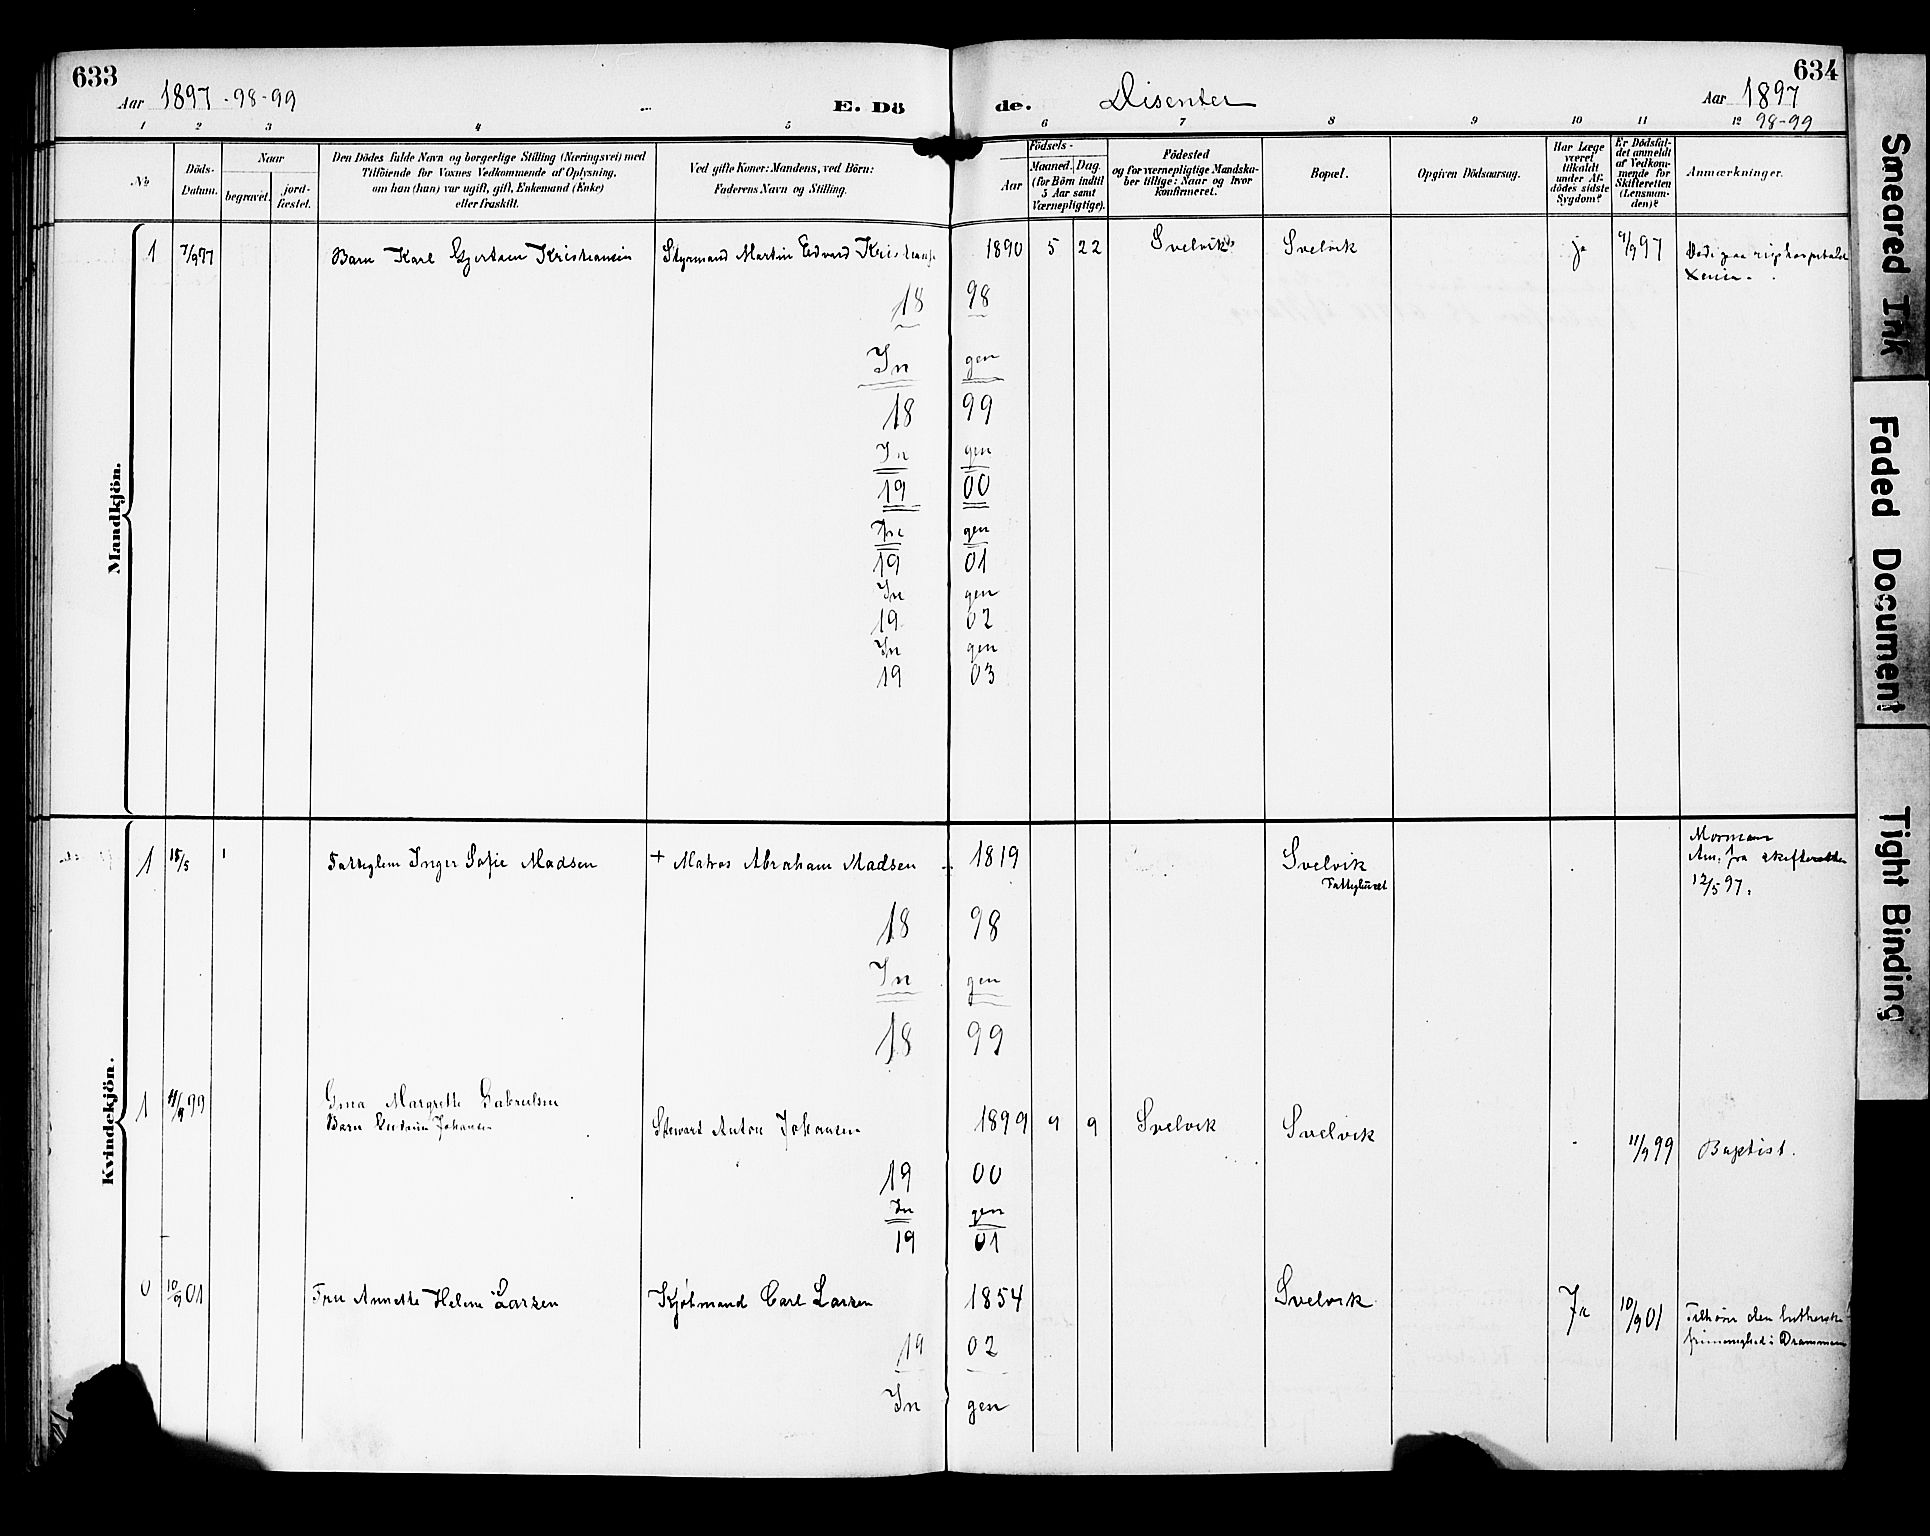 633
634
Aar 1897-98-99
E. Dö
de.
Disenter
Aar 1897
98-99
1 2 3 4 5 6 7 8 9 10 11 12
No
Döds-
Datum.
Naar
begravet.
jord-
fæstet.
Den Dödes fulde Navn og borgerlige Stilling (Næringsvei) med
Tilföiende for Voxnes Vedkommende af Oplysning,
om han (hun) var ugift, gift, Enkemand (Enke)
eller fraskilt.
Ved gifte Koner: Mandens, ved Börn:
Faderens Navn og Stilling.
Födsels-
Aar
Maaned.
Dag.
(for Börn indtil
5 Aar samt
Værnepligtige).
Födested
og for værnepligtige Mandska-
ber tillige: Naar og hvor
konfirmeret.
Bopæl.
Opgiven Dödsaarsag.
Har Læge
været
tilkaldt
under Af-
dödes sidste
Sygdom?
Er Dödsfal-
det anmeldt
af Vedkom-
mende for
Skifteretten
(Lensman-
den)?
Anmærkninger.
Mandkjön.
1 7/9 97 Barn Karl Gjertsen Kristiansen Styrmand Martin Edvard 1890 5 22 Svelvik Svelvik ja 9/9 97
18 98
In gen
18 99
In gen
19 00
gen
19 01
In gen
19 02
In gen
19 03
Kvindekjön.
1 15/5 Inger Sofie Madsen + Matros Abraham Madsen 1819 Svelvik
Fattighuset
Morman
An. fra skifteretten
12/5 97.
18 98
In gen
18 99
1 11/9 99 Margrethe
Barn Johansen Stewart Anton Johansen 1899 9 9 Svelvik Svelvik 11/9 99 Baptist.
19 00
In gen
19 01
0 10/9 01 Fru Annette Helene Larsen Kjøbmand Carl Larsen 1854 Svelvik Ja 10/9 01 den lutherske
i Drammen
19 02
In gen
Smeared Ink
Faded Document
Tight Binding